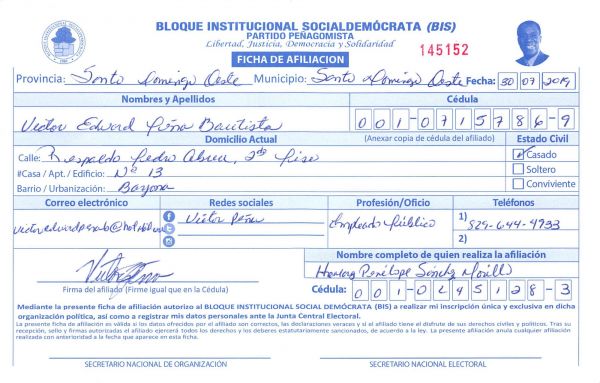 BLOQUE INSTITUCIONAL SOCIALDEMÓCRATA (BIS)
PARTIDO PEÑAGOMISTA
Libertad, Justicia, Democracia y Solidaridad
FICHA DE AFILIACION
145152
Provincia: Santo Domingo Oeste Municipio: Santo Domingo Oeste Fecha: 30 07 2019
Nombres y Apellidos Cédula
Victor Edward Peña Bautista 001-0715786-9
Domicilio Actual (Anexar copia de cédula del afiliado) Estado Civil
Calle: Respaldo Pedro Abreu, 2do Piso Casado
#Casa / Apt. / Edificio: Nº 13 Soltero
Barrio / Urbanización: Bayona Conviviente
Correo electrónico Redes sociales Profesión/Oficio Teléfonos
Victor Peña Empleado Público 1) 829-644-4933
2)
Nombre completo de quien realiza la afiliación
Penélope Sánchez Morillo
Firma del afiliado (Firme igual que en la Cédula) Cédula: 001-0245128-3
Mediante la presente ficha de afiliación autorizo al BLOQUE INSTITUCIONAL SOCIAL DEMÓCRATA (BIS) a realizar mi inscripción única y exclusiva en dicha
organización política, así como a registrar mis datos personales ante la Junta Central Electoral.
La presente ficha de afiliación es válida si los datos ofrecidos por el afiliado son correctos, las declaraciones veraces y si el afiliado tiene el disfrute de sus derechos civiles y políticos. Tras su
recepción, sello y firmas autorizadas el afiliado ejercerá todos los derechos y los deberes estatutariamente sancionados, de acuerdo a la ley. La presente afiliación anula cualquier afiliación
realizada con anterioridad a la fecha que aparece en esta ficha.
SECRETARIO NACIONAL DE ORGANIZACIÓN SECRETARIO NACIONAL ELECTORAL